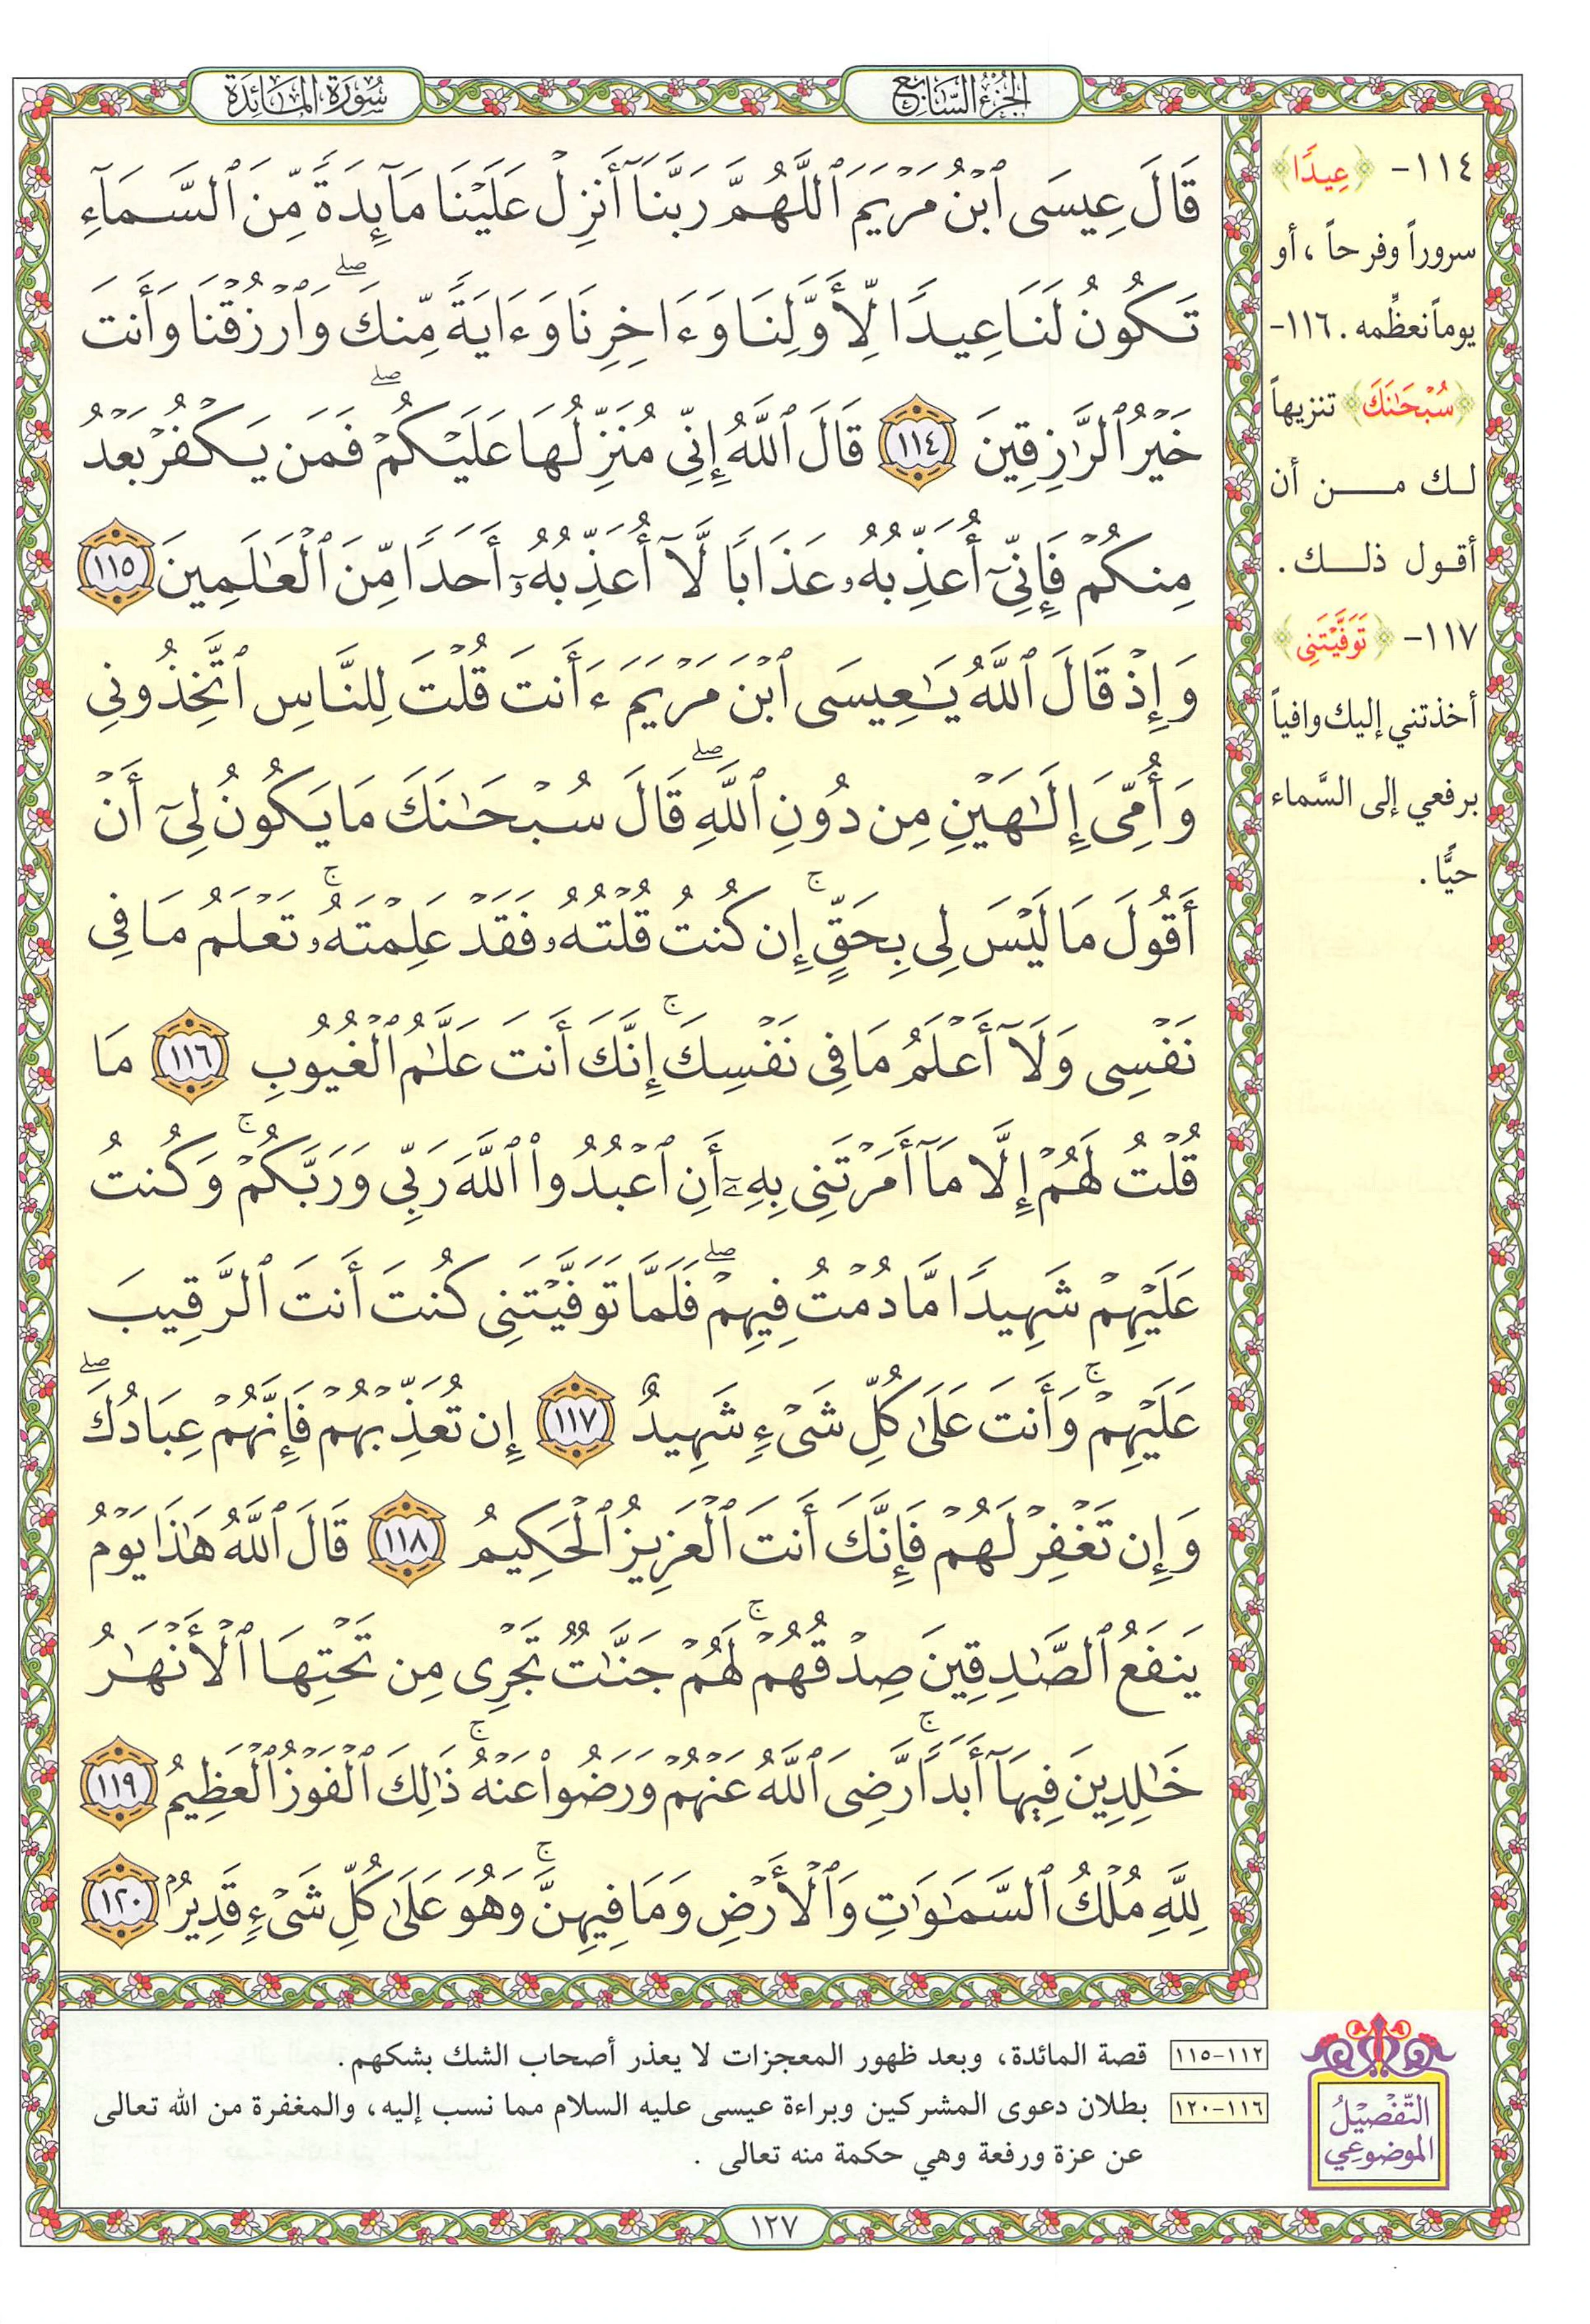 الجزء السابع
سورة المائدة
قَالَ عِيسَى ٱبْنُ مَرْيَمَ ٱللَّهُمَّ رَبَّنَآ أَنزِلْ عَلَيْنَا مَآئِدَةً مِّنَ ٱلسَّمَآءِ
تَكُونُ لَنَا عِيدًا لِّأَوَّلِنَا وَءَاخِرِنَا وَءَايَةً مِّنكَ ۖ وَٱرْزُقْنَا وَأَنتَ
خَيْرُ ٱلرَّٰزِقِينَ ١١٤ قَالَ ٱللَّهُ إِنِّى مُنَزِّلُهَا عَلَيْكُمْ ۖ فَمَن يَكْفُرْ بَعْدُ
مِنكُمْ فَإِنِّىٓ أُعَذِّبُهُۥ عَذَابًا لَّآ أُعَذِّبُهُۥٓ أَحَدًا مِّنَ ٱلْعَٰلَمِينَ ١١٥
وَإِذْ قَالَ ٱللَّهُ يَٰعِيسَى ٱبْنَ مَرْيَمَ ءَأَنتَ قُلْتَ لِلنَّاسِ ٱتَّخِذُونِى
وَأُمِّىَ إِلَٰهَيْنِ مِن دُونِ ٱللَّهِ ۖ قَالَ سُبْحَٰنَكَ مَا يَكُونُ لِىٓ أَنْ
أَقُولَ مَا لَيْسَ لِى بِحَقٍّ ۚ إِن كُنتُ قُلْتُهُۥ فَقَدْ عَلِمْتَهُۥ ۚ تَعْلَمُ مَا فِى
نَفْسِى وَلَآ أَعْلَمُ مَا فِى نَفْسِكَ ۚ إِنَّكَ أَنتَ عَلَّٰمُ ٱلْغُيُوبِ ١١٦ مَا
قُلْتُ لَهُمْ إِلَّا مَآ أَمَرْتَنِى بِهِۦٓ أَنِ ٱعْبُدُوا۟ ٱللَّهَ رَبِّى وَرَبَّكُمْ ۚ وَكُنتُ
عَلَيْهِمْ شَهِيدًا مَّا دُمْتُ فِيهِمْ ۖ فَلَمَّا تَوَفَّيْتَنِى كُنتَ أَنتَ ٱلرَّقِيبَ
عَلَيْهِمْ ۚ وَأَنتَ عَلَىٰ كُلِّ شَىْءٍ شَهِيدٌ ١١٧ إِن تُعَذِّبْهُمْ فَإِنَّهُمْ عِبَادُكَ ۖ
وَإِن تَغْفِرْ لَهُمْ فَإِنَّكَ أَنتَ ٱلْعَزِيزُ ٱلْحَكِيمُ ١١٨ قَالَ ٱللَّهُ هَٰذَا يَوْمُ
يَنفَعُ ٱلصَّٰدِقِينَ صِدْقُهُمْ ۚ لَهُمْ جَنَّٰتٌ تَجْرِى مِن تَحْتِهَا ٱلْأَنْهَٰرُ
خَٰلِدِينَ فِيهَآ أَبَدًا ۚ رَّضِىَ ٱللَّهُ عَنْهُمْ وَرَضُوا۟ عَنْهُ ۚ ذَٰلِكَ ٱلْفَوْزُ ٱلْعَظِيمُ ١١٩
لِلَّهِ مُلْكُ ٱلسَّمَٰوَٰتِ وَٱلْأَرْضِ وَمَا فِيهِنَّ ۚ وَهُوَ عَلَىٰ كُلِّ شَىْءٍ قَدِيرٌۢ ١٢٠
١١٤- ﴿عِيدًا﴾
سروراً وفرحاً، أو
يوماً نعظِّمه. ١١٦-
﴿سُبْحَٰنَكَ﴾ تنزيهاً
لك من أن
أقول ذلك.
١١٧- ﴿تَوَفَّيْتَنِى﴾
أخذتني إليك وافياً
برفعي إلى السَّماء
حيًّا.
التفصيل
الموضوعي
١١٢-١١٥ قصة المائدة، وبعد ظهور المعجزات لا يعذر أصحاب الشك بشكهم.
١١٦-١٢٠ بطلان دعوى المشركين وبراءة عيسى عليه السلام مما نسب إليه، والمغفرة من الله تعالى
عن عزة ورفعة وهي حكمة منه تعالى .
١٢٧